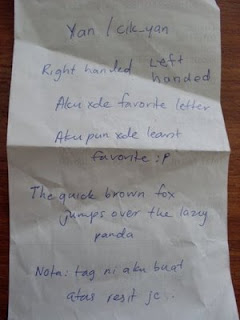 Yan / cik_yan
Right handed Left
handed
Aku xde favorite letter
Aku pun xde least
favorite :P
The quick brown fox
jumps over the lazy
panda
Nota: tag ni aku buat
atas resit je..